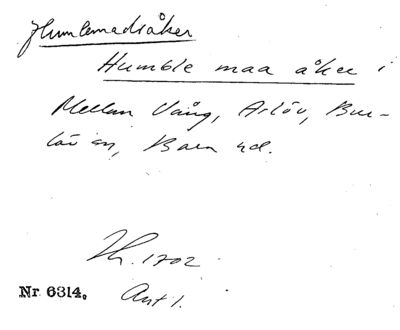 Humlemadsåker
Humble maa åker i
Mellan Vång, Arlöv, Bur-
löv sn, Bara hd.
Jb. 1702
Nr 6314. Ant 1.